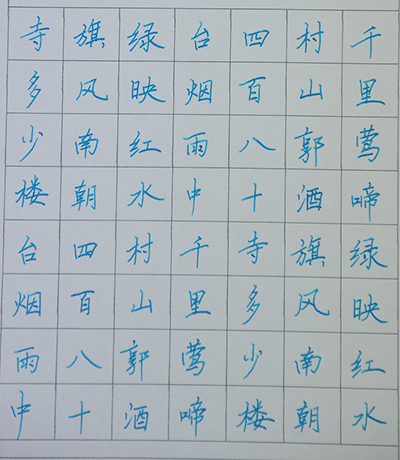 千里莺啼绿映红水
村山郭酒旗风南朝
四百八十寺多少楼
台烟雨中千里莺啼
绿映红水村山郭酒
旗风南朝四百八十
寺多少楼台烟雨中